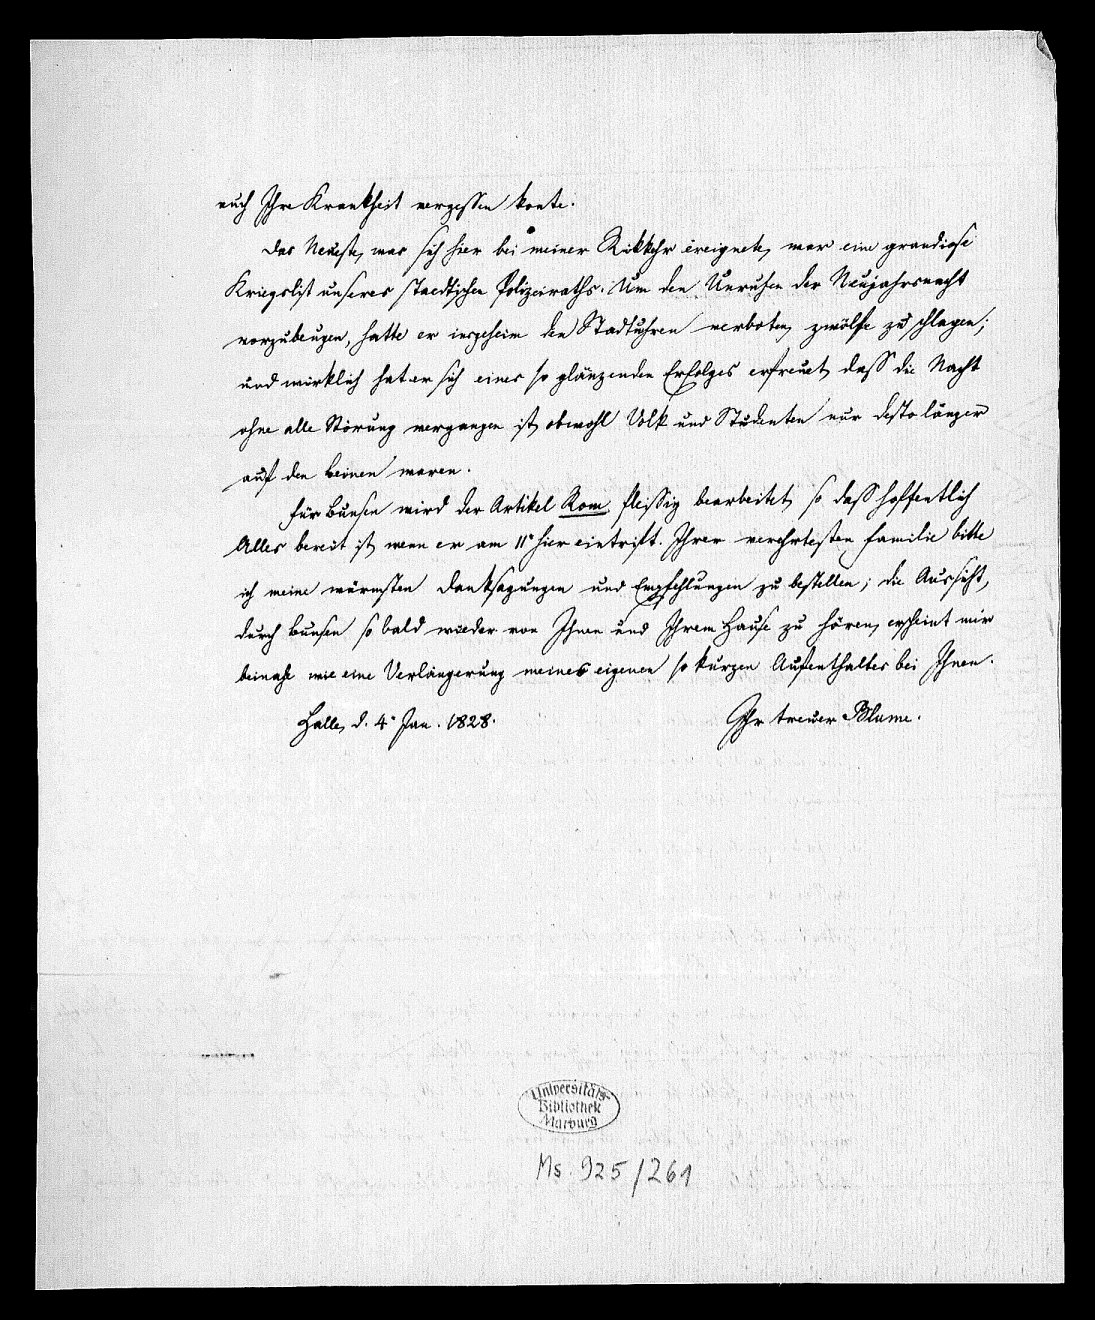 auch Ihre Krankheit vergessen konte.
Das Neueste, was sich hier bei meiner Rükkehr ereignete, war eine grandiose
Kriegslist unseres staedtschen Polizeiraths. Um den Unruhen der Neujahrsnacht
vorzubeugen, hatte er insgeheim den Stadtuhren verboten, zwölfe zu schlagen;
und würklich hat er sich eines so glänzenden Erfolges erfreuet, dass die Nacht
ohne alle Störung vergangen ist, obwohl Volk und Studenten nur desto länger
auf den Beinen waren.
Für Bunsen wird der Artikel Rom fleissig bearbeitet, so dass hoffentlich
Alles bereit ist, wenn er am 11ᵗ hier eintrift. Ihrer verehrtesten Familie bitte
ich meine wärmsten Danksagungen und Empfehlungen zu bestellen; die Aussicht,
durch Bunsen so bald wieder von Ihnen und Ihrem Hause zu hören, erscheint mir
beinahe wie eine Verlängerung meines eigenen so kurzen Aufenthaltes bei Ihnen.
Halle, d. 4ᵗ Jan. 1828.
Ihr treuer Blume.
Universitäts-
Bibliothek
Marburg
Ms. 925/261